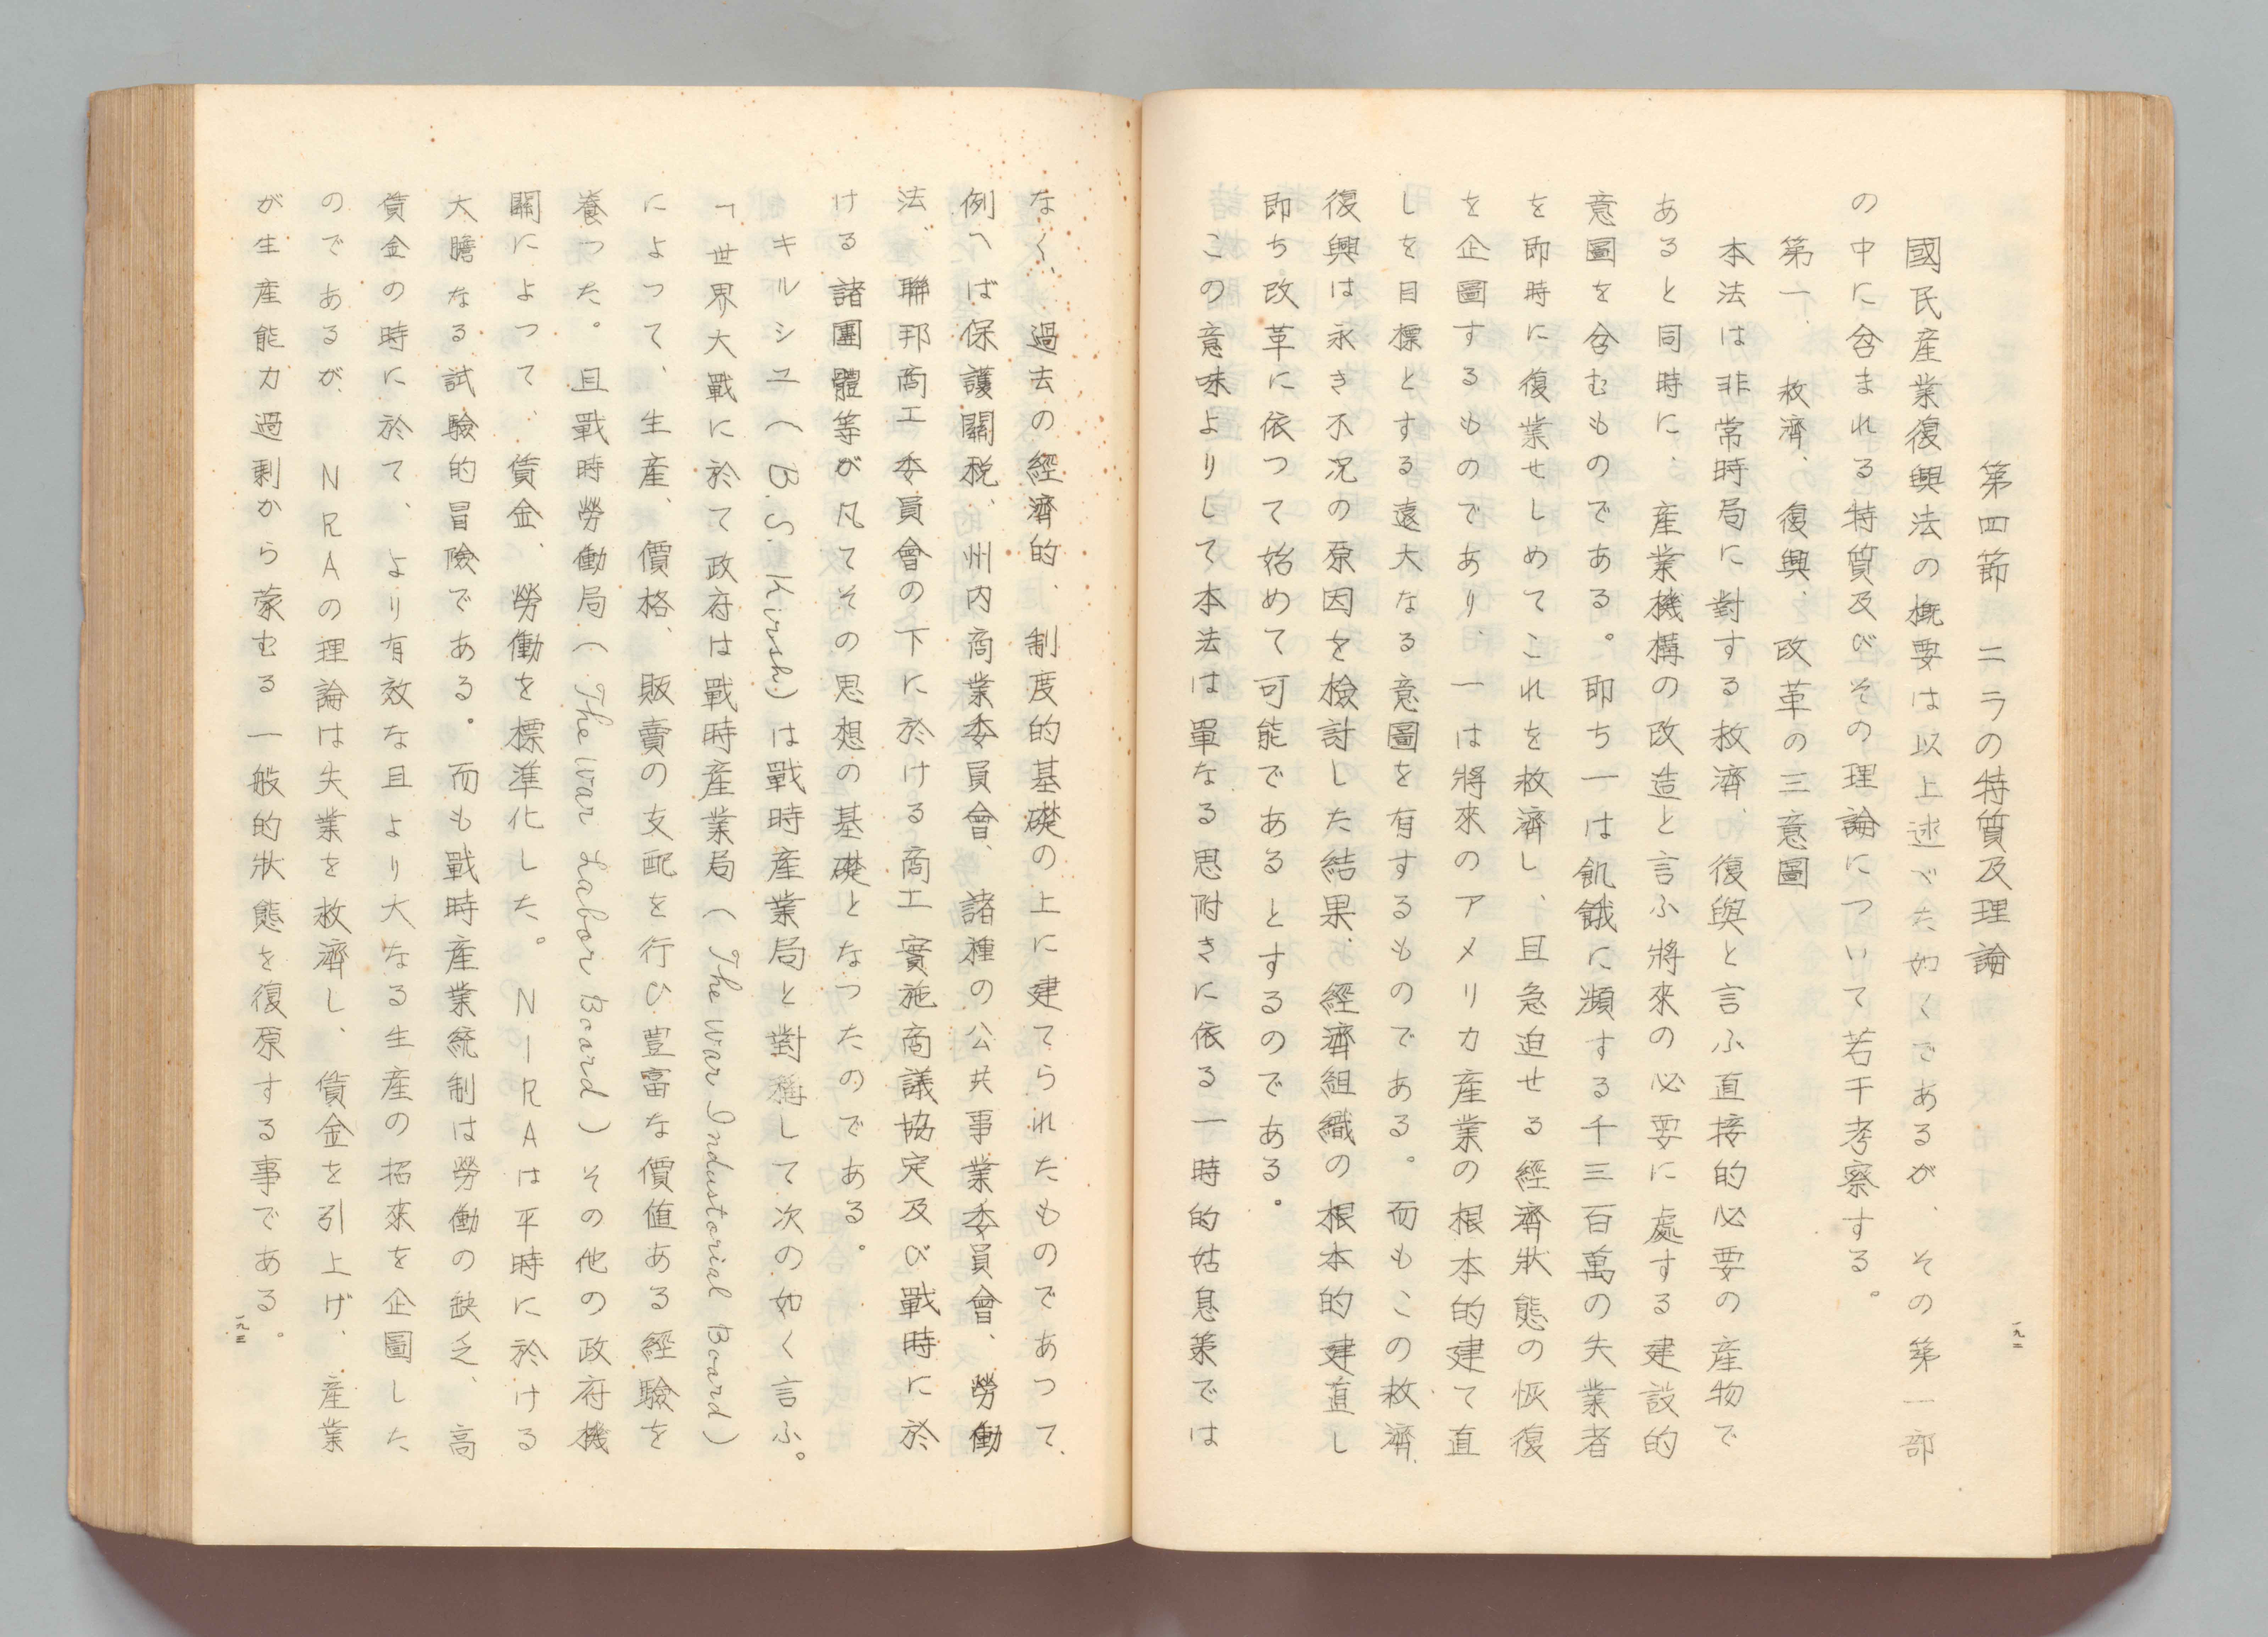 第四節　ニラの特質及理論
國民産業復興法の概要は以上述べた如くであるが、その第一部
の中に含まれる特質及びその理論について若干考察する。
第一、救濟、復興、改革の三意圖
本法は非常時局に對する救濟、復興と言ふ直接的必要の産物で
あると同時に、産業機構の改造と言ふ將來の必要に處する建設的
意圖を含むものである。即ち一は飢餓に瀕する千三百萬の失業者
を即時に復業せしめてこれを救濟し、且急迫せる經濟狀態の恢復
を企圖するものであり、一は將來のアメリカ産業の根本的建て直
しを目標とする遠大なる意圖を有するものである。而もこの救濟、
復興は永き不況の原因を檢討した結果、經濟組織の根本的建直し
即ち改革に依つて始めて可能であるとするのである。
この意味よりして本法は單なる思附きに依る一時的姑息策では
一九二
なく、過去の經濟的、制度的基礎の上に建てられたものであつて、
例へば保護關税、州内商業委員會、諸種の公共事業委員會、勞働
法、聯邦商工委員會の下に於ける商工實施商議協定及び戰時に於
ける諸團體等が凡てその思想の基礎となつたのである。
キルシユ（B.S. Kirsh）は戰時産業局と對稱して次の如く言ふ。
「世界大戰に於て政府は戰時産業局（The War Industorial Board）
によつて、生産、價格、販賣の支配を行ひ豊富な價値ある經驗を
養つた。且戰時勞働局（The War Labor Board）その他の政府機
關によつて、賃金、勞働を標準化した。NIRAは平時に於ける
大膽なる試驗的冒險である。而も戰時産業統制は勞働の缺乏、高
賃金の時に於て、より有效な且より大なる生産の招來を企圖した
のであるが、NRAの理論は失業を救濟し、賃金を引上げ、産業
が生産能力過剩から蒙むる一般的狀態を復原する事である。
一九三